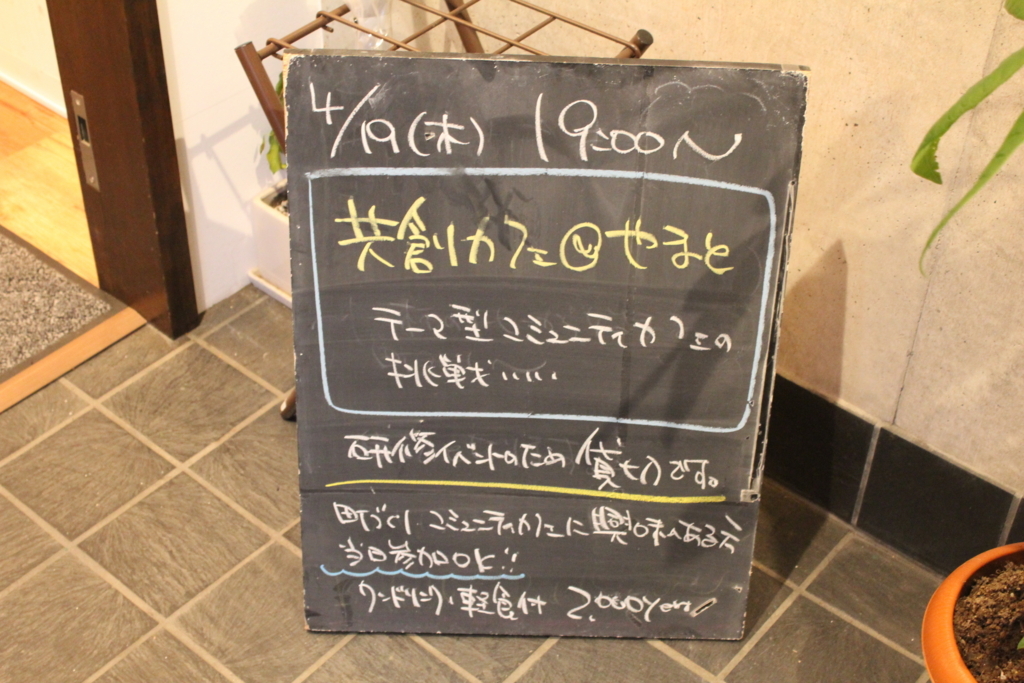 4/19(木) 19:00〜
共創カフェ@やまと
テーマ型コミュニティカフェの
挑戦・・・・・
研修イベントのため貸切です。
町づくり・コミュニティカフェに興味ある方
当日参加OK!!
ワンドリンク・軽食付 2,000yen